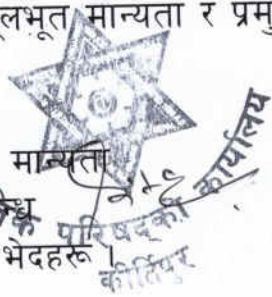 लभूत मान्यता र प्रमु
मान्यता
भेदहरू ।
परिषद्को कार्यालय
कीर्तिपुर